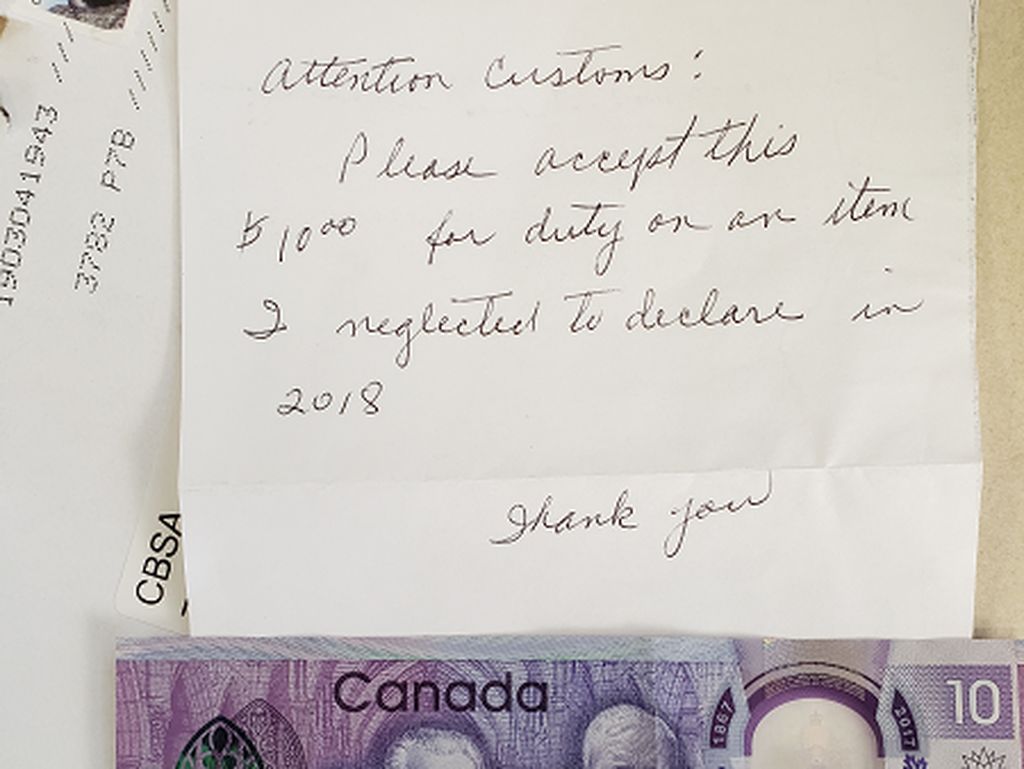 Attention Customs:
Please accept this
$10.00 for duty on an item
I neglected to declare in
2018
Thank you
1903041943
3782 P7B
CBSA
Canada
1867
2017
10